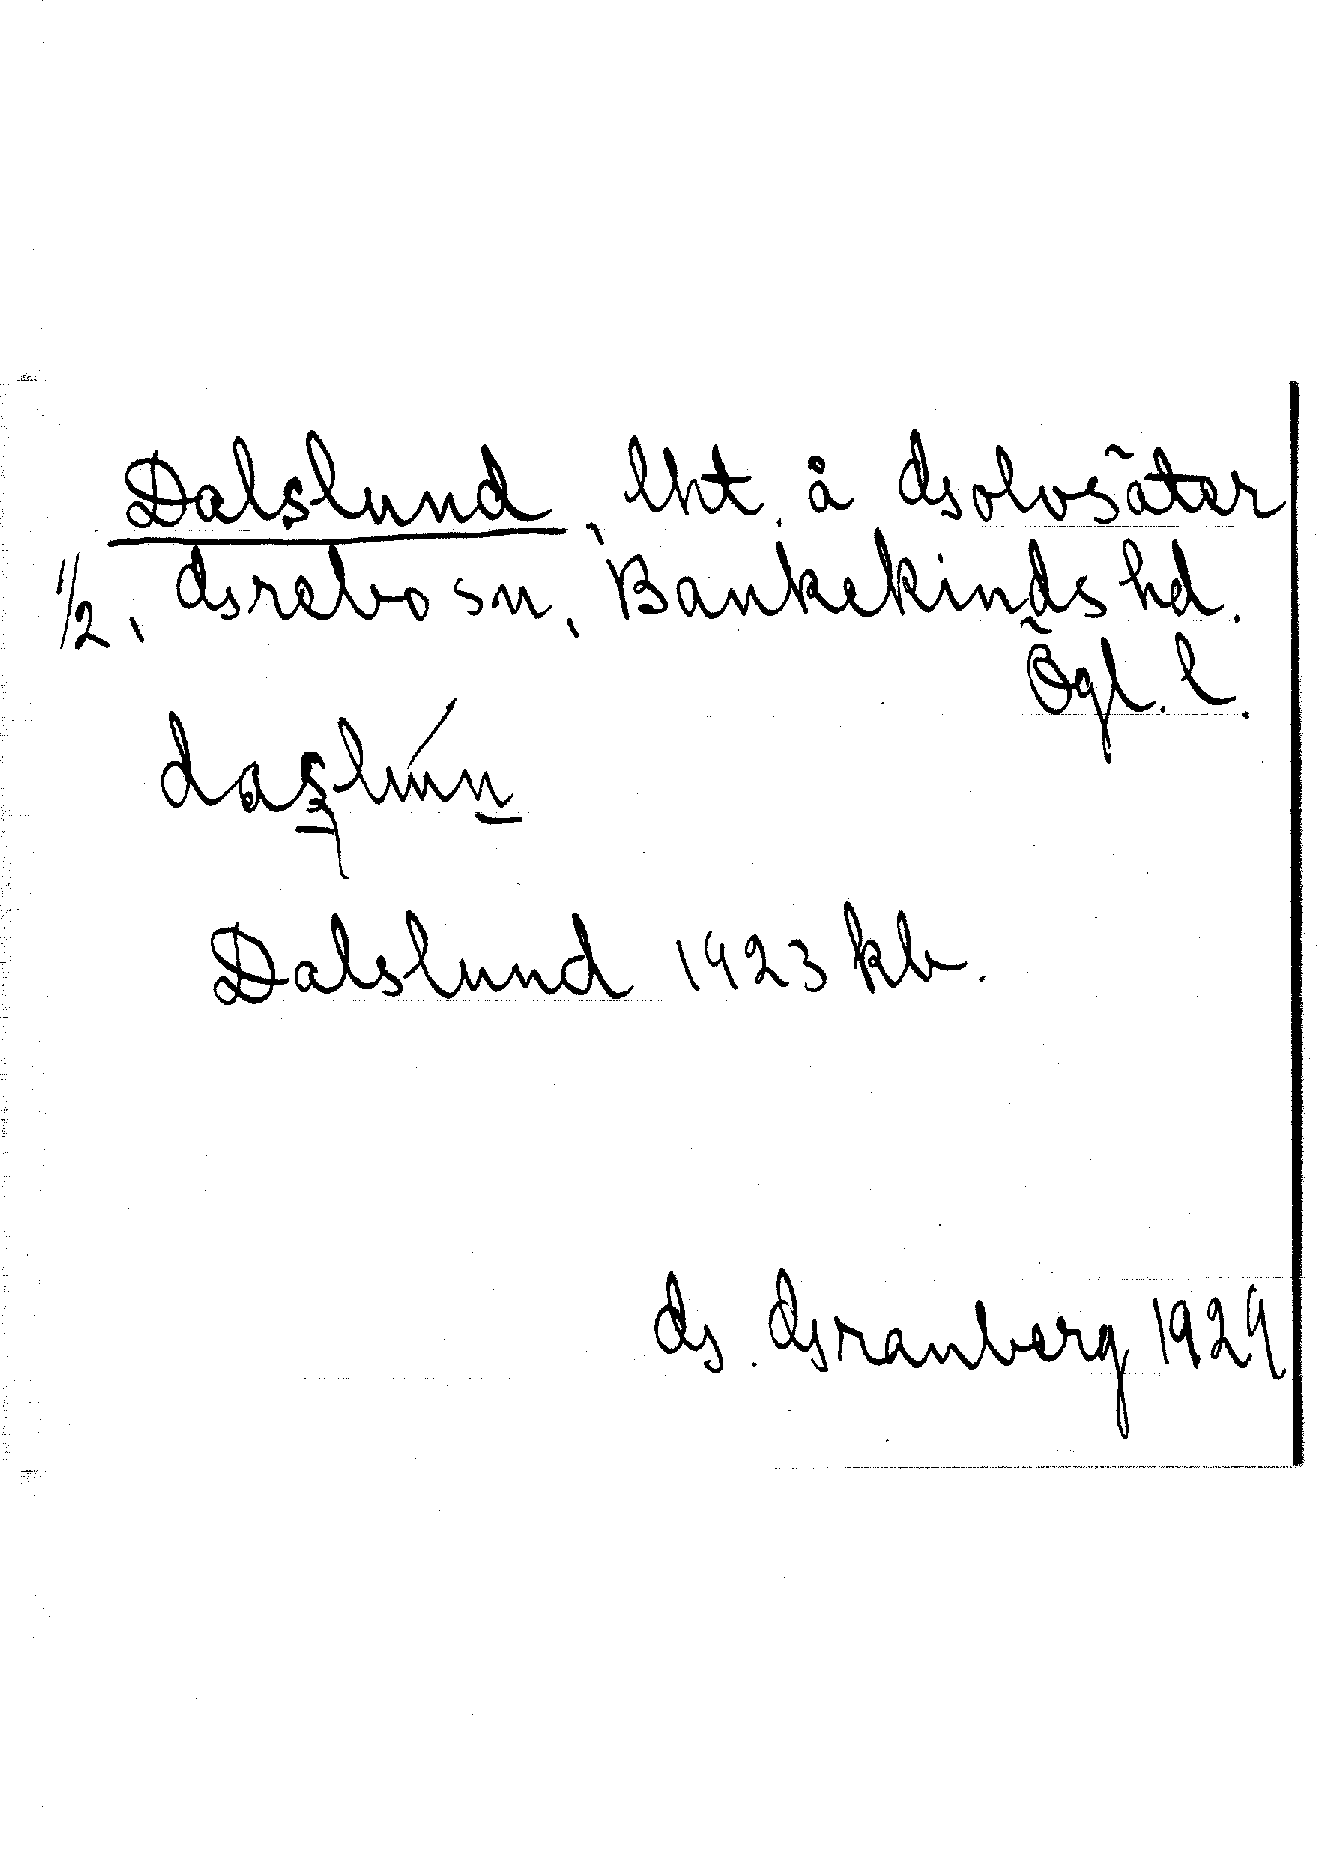 Dalslund, lht. å Golvsäter
1/2, Grebo sn, Bankekinds hd.
Ögl. l.
Dalslund 1923 kb.
G. Granberg 1929